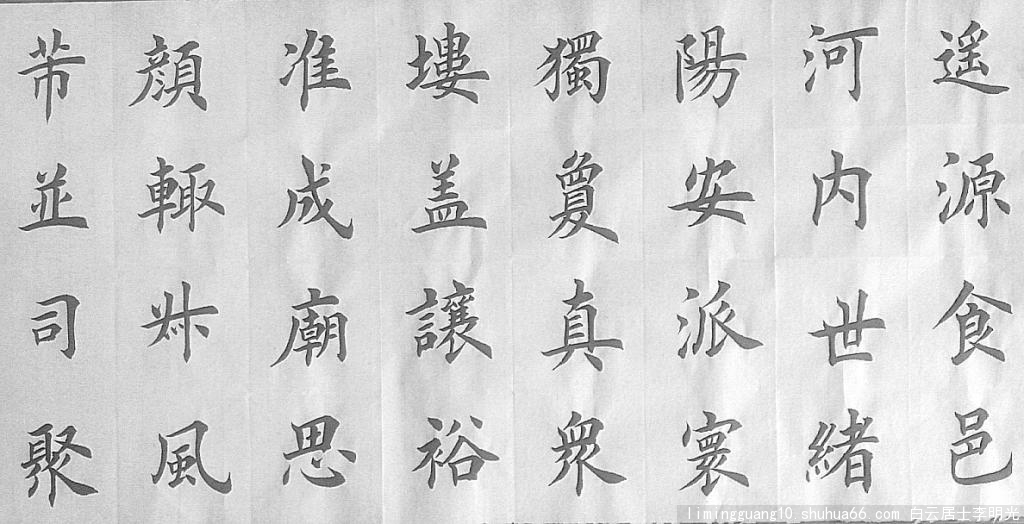 遥源食邑
河内世緒
陽安派寰
獨真衆
塿盖讓裕
准成廟思
顔輙風
芾並司聚
limingguang10.shuhua66.com 白云居士李明光